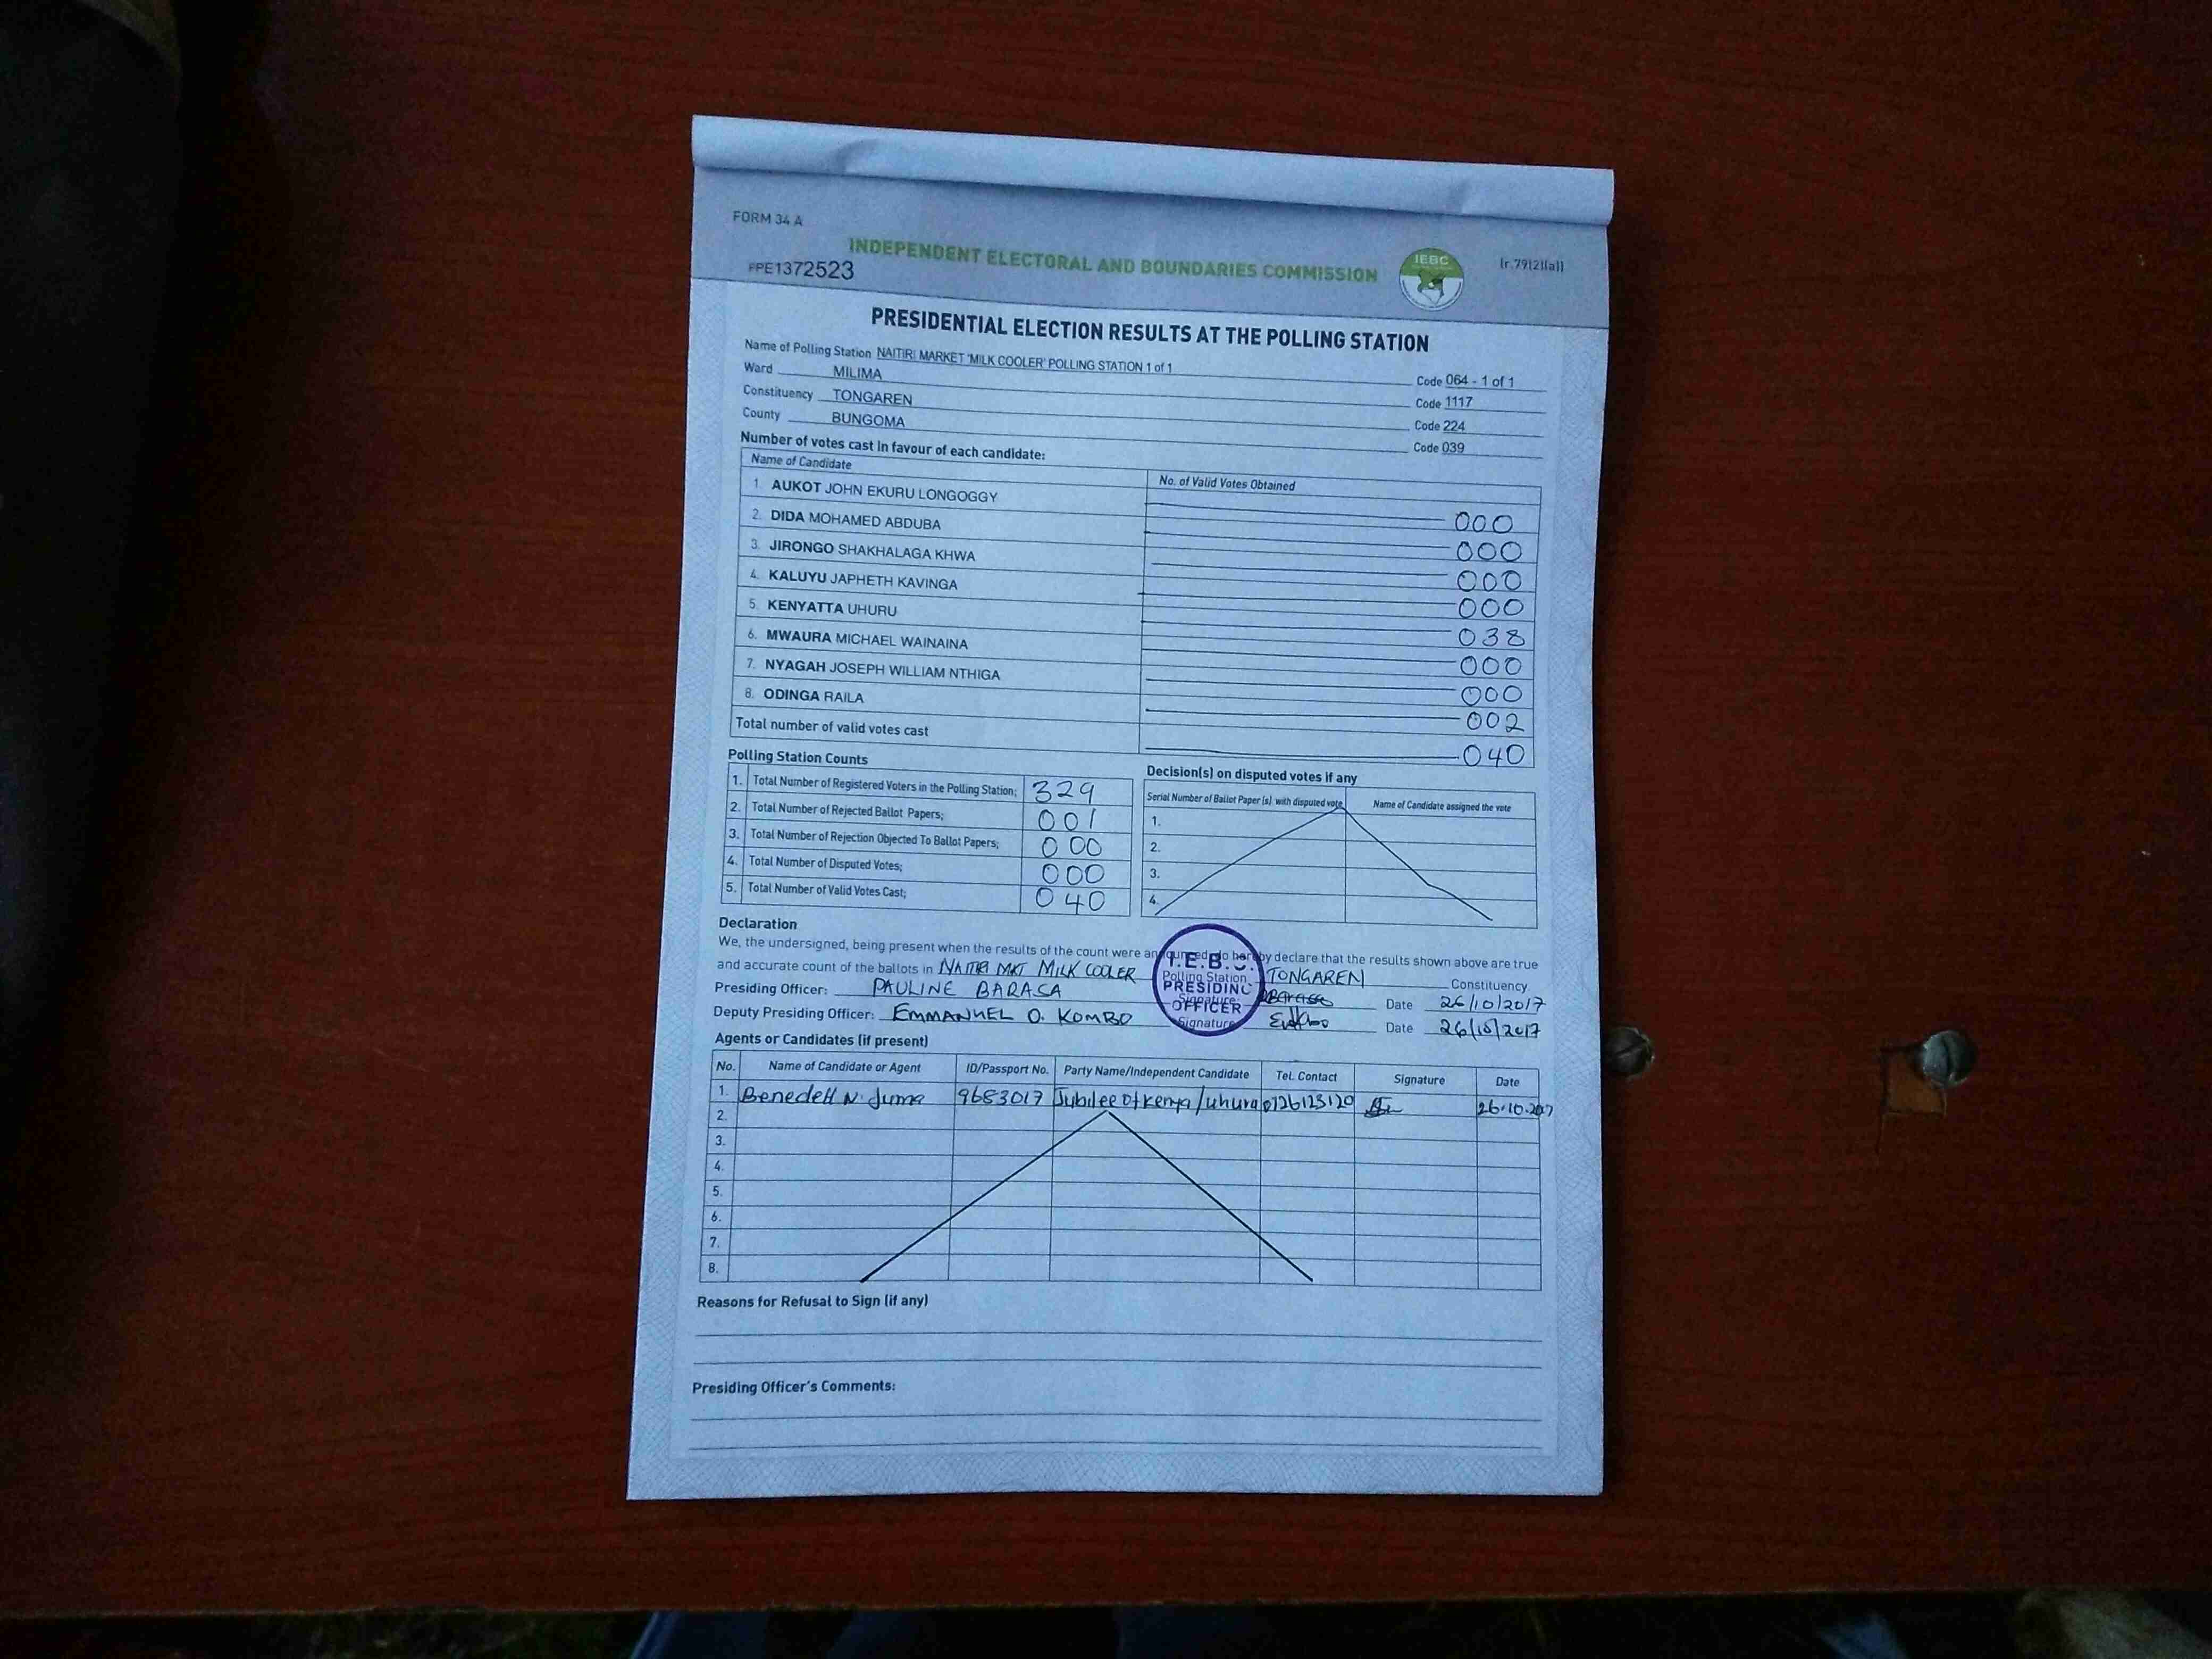 FORM 34 A
INDEPENDENT ELECTORAL AND BOUNDARIES COMMISSION
IEBC
(r.79(2)(a))
FPE1372523
PRESIDENTIAL ELECTION RESULTS AT THE POLLING STATION
Name of Polling Station NAITIRI MARKET 'MILK COOLER' POLLING STATION 1 of 1 Code 064 - 1 of 1
Ward MILIMA Code 1117
Constituency TONGAREN Code 224
County BUNGOMA Code 039
Number of votes cast in favour of each candidate:
Name of Candidate No. of Valid Votes Obtained
1. AUKOT JOHN EKURU LONGOGGY 000
2. DIDA MOHAMED ABDUBA 000
3. JIRONGO SHAKHALAGA KHWA 000
4. KALUYU JAPHETH KAVINGA 000
5. KENYATTA UHURU 038
6. MWAURA MICHAEL WAINAINA 000
7. NYAGAH JOSEPH WILLIAM NTHIGA 000
8. ODINGA RAILA 002
Total number of valid votes cast 040
Polling Station Counts
1. Total Number of Registered Voters in the Polling Station; 329
2. Total Number of Rejected Ballot Papers; 001
3. Total Number of Rejection Objected To Ballot Papers; 000
4. Total Number of Disputed Votes; 000
5. Total Number of Valid Votes Cast; 040
Decision(s) on disputed votes if any
Serial Number of Ballot Paper (s) with disputed vote Name of Candidate assigned the vote
1.
2.
3.
4.
Declaration
We, the undersigned, being present when the results of the count were announced do hereby declare that the results shown above are true
and accurate count of the ballots in NAITIRI MKT MILK COOLER TONGAREN Constituency
Presiding Officer: PAULINE BARASA Signature: Barasa Date 26/10/2017
Deputy Presiding Officer: EMMANUEL O. KOMBO Signature Date 26/10/2017
I.E.B.C.
Polling Station
PRESIDING
OFFICER
Agents or Candidates (if present)
No. Name of Candidate or Agent ID/Passport No. Party Name/Independent Candidate Tel. Contact Signature Date
1. Benedett N. Juma 9683017 Jubilee of Kenya/uhuru 0726123120 26.10.2017
2.
3.
4.
5.
6.
7.
8.
Reasons for Refusal to Sign (if any)
Presiding Officer's Comments: